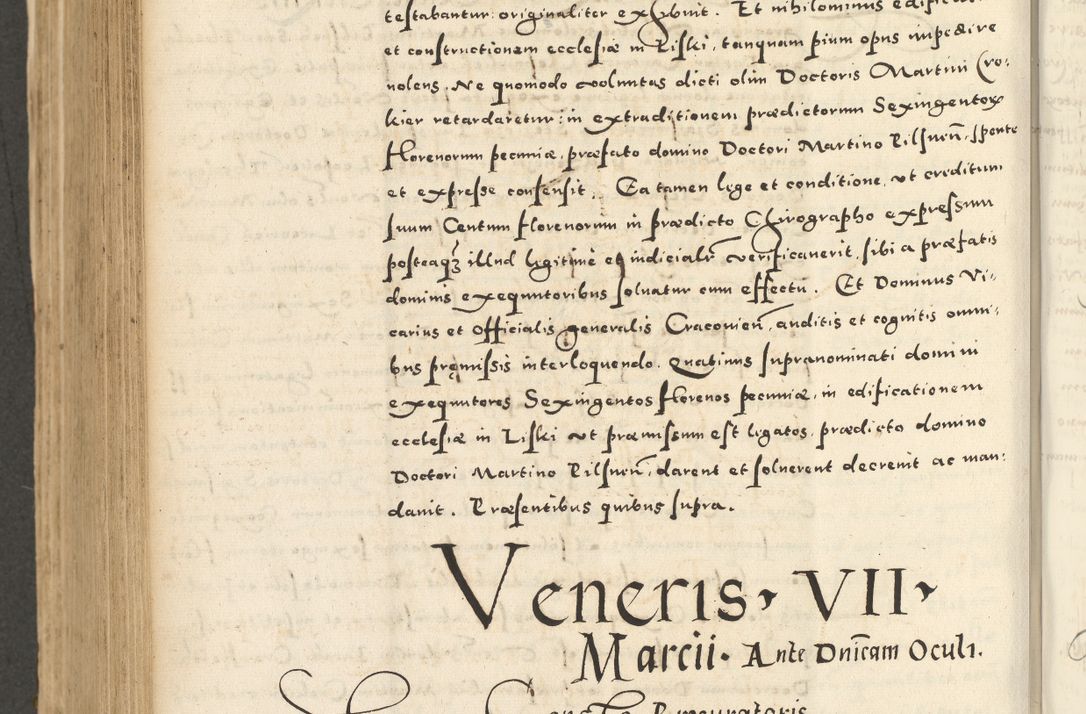 testabantur originaliter exhibuit. Et nihilominus
et constructionem ecclesiæ in Liski, tanquam pium opus impedire
nolens, Ne quomodo voluntas dicti olim Doctoris Martini Cro-
kier retardaretur, in extraditionem prædictorum Sexingentor
florenorum pecuniæ, præfato domino Doctori Martino Pilsnen, sponte
et expresse consensit. Ea tamen lege et conditione, ut creditum
suum Centum florenorum in prædicto Chirographo expressum
posteaqз illud legitime et iudicialr verificaverit, sibi a præfatis
dominis exequutoribus solvatur cum effectu. Et Dominus Vi-
carius et Officialis generalis Cracovien, auditis et cognitis omni-
bus pręmissis interloquendo. Quatinus supranominati domini
exequutores Sexingentos florenos pecuniæ, in edificationem
ecclesiæ in Liski ut præmissum est legatos, prædicto domino
Doctori Martino Pilsnen, darent et solverent decrevit ac man-
davit. Præsentibus quibus supra.
Veneris, VII,
Marcii. Ante Dnicam Oculi.